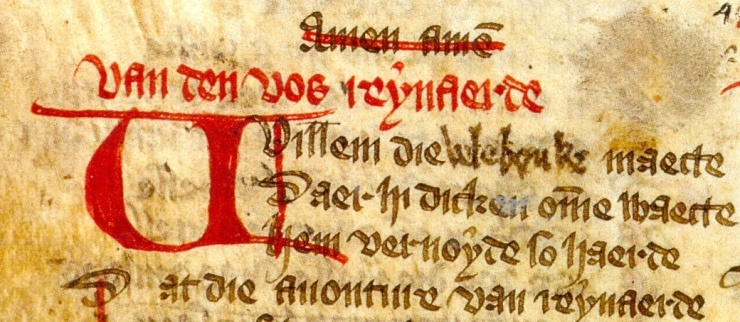 Amen amē
Van den vos reynaerde
UVillem die maecte
Daer hi dicken om̄e waecte
Hem vernoyde so haerde
Dat die auonture van reynaerde